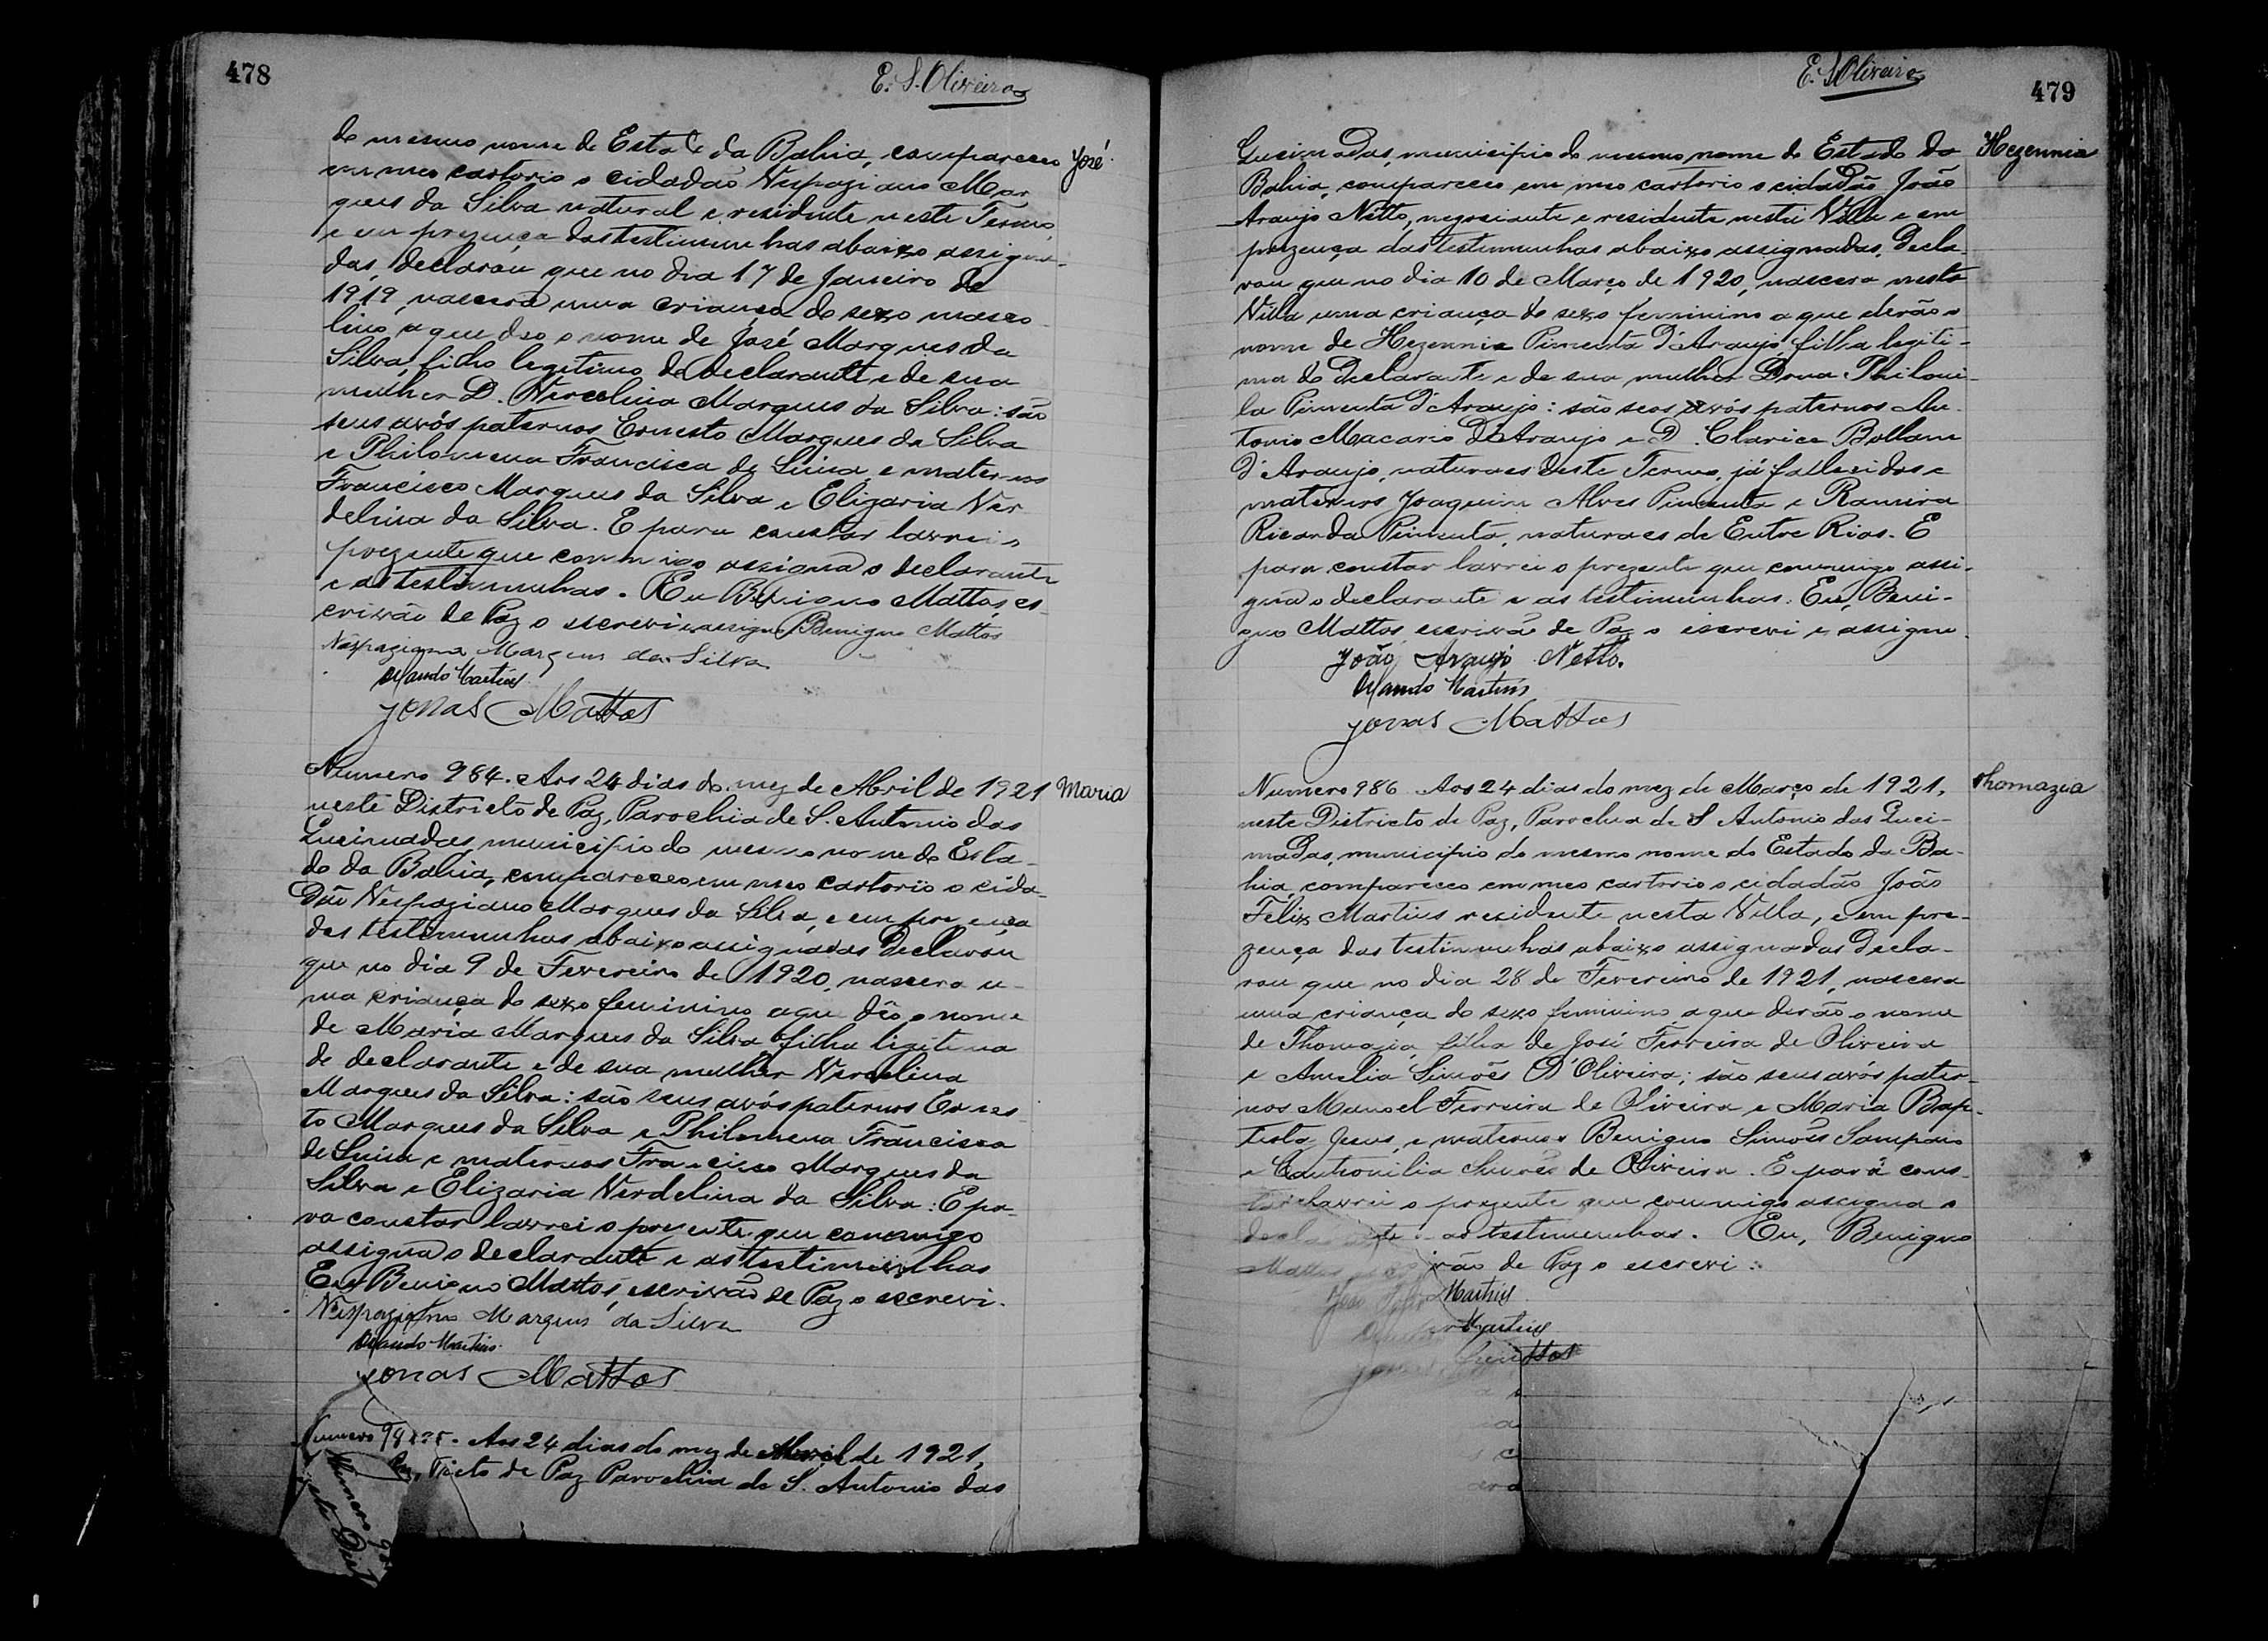 478
E. S. Oliveira
do mesmo nome do Estado da Bahia, compareceo
em meo cartorio o cidadão Vespaziano Mar
ques da Silva natural e residente neste Termo,
e em prezença das testimunhas abaixo assigna-
das, declarou que no dia 17 de Janeiro de
1919, nascera uma criança do sexo masco
lino a que deo o nome de José Marques da
Silva, filho legitimo do declarante e de sua
mulher D. Vercelina Marques da Silva: são
seus avós paternos Ernesto Marques da Silva
e Philomena Francisca de Lima e maternos
Francisco Marques da Silva e Elizaria Ver
delina da Silva. E para constar lavrei o
prezente que commigo assigna o declarante
e as testimunhas. Eu Benigno Mattos, es-
crivão de Paz o escrevi e assigno Benigno Mattos
Vespaziano Marques da Silva
Orlando Martins
Jonas Mattos
José
Numero 984. Aos 24 dias do mez de Abril de 1921
neste Districto de Paz, Parochia de S. Antonio das
Queimadas, municipio do mesmo nome do Esta-
do da Bahia, compareceo em meo cartorio o cida-
dão Vespaziano Marques da Silva, e em prezença
das testimunhas abaixo assignadas declarou
que no dia 9 de Fevereiro de 1920, nascera u-
ma criança do sexo feminino a que deo o nome
de Maria Marques da Silva, filha ligitima
do declarante e de sua mulher Vercelina
Marques da Silva: são seus avós paternos Ernes-
to Marques da Silva e Philomena Francisca
de Lima e maternos Francisco Marques da
Silva e Elizaria Verdelina da Silva: E pa-
ra constar lavrei o prezente que commigo
assigna o declarante e as testimunhas
Eu, Benigno Mattos, escrivão de Paz o escrevi.
Vespaziano Marques da Silva
Orlando Martins.
Jonas Mattos
Maria
Numero 98 . Aos 24 dias do mez de Abril de 1921,
tricto de Paz Parochia de S. Antonio das
Numero 98
E. S. Oliveira
479
Queimadas, municipio do mesmo nome do Estado da
Bahia, compareceo em meo cartorio o cidadão João
Araujo Netto, negociante e residente nesta Villa e em
prezença das testimunhas abaixo assignadas, decla-
rou que no dia 10 de Março de 1920, nascera nesta
Villa uma criança do sexo feminino a que derão o
nome de Hezennia Pimenta d'Araujo, filha legiti-
ma do declarante e de sua mulher Dona Philoni-
la Pimenta d'Araujo: são seos avós paternos An-
tonio Macario d'Araujo e D. Clarice
d'Araujo, naturaes deste Termo, já fallecidos e
maternos Joaquim Alves Pimenta e Ramira
Ricarda Pimenta, naturaes de Entre Rios. E
para constar lavrei o prezente que commigo assi-
gna o declarante e as testimunhas. Eu, Beni-
gno Mattos, escrivão de Paz o escrevi e assigno.
João Araujo Netto.
Orlando Martins
Jonas Mattos
Hezennia
Numero 986 Aos 24 dias do mez de Março de 1921,
neste Districto de Paz, Parochia de S Antonio das Quei-
madas, municipio do mesmo nome do Estado da Ba-
hia compareceo em meo cartorio o cidadão João
Felix Martins residente nesta Villa, e em pre-
zença das testimunhas abaixo assignadas decla-
rou que no dia 28 de Fevereiro de 1921, nascera
uma criança do sexo feminino a que derão o nome
de Thomazia, filha de José Ferreira de Oliveira
e Amelia Simões d'Oliveira; são seus avós pater-
nos Manoel Ferreira de Oliveira e Maria Bap-
tista Jesus, e maternos Benigno Simões Sampaio
e de Oliveira. E para cons-
tar lavrei o prezente que commigo assigna o
declarante e as testimunhas. Eu, Benigno
Mattos escrivão de Paz o escrevi.
João Felix Martins.
Martins
Jonas Mattos
Thomazia